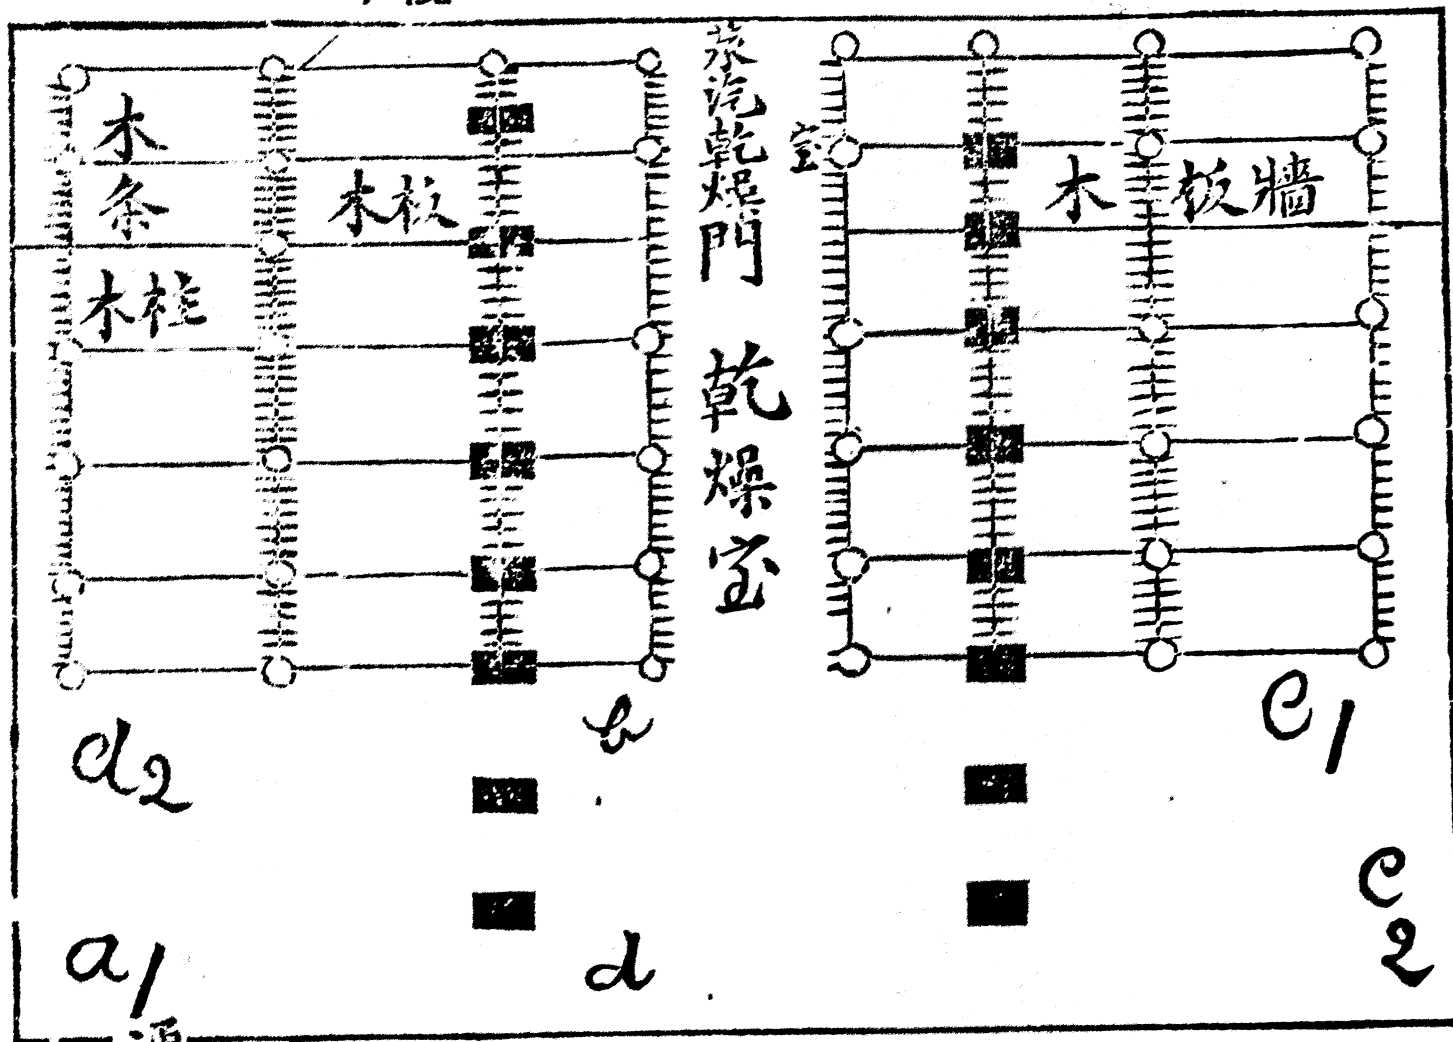 木条
木柱
木板
蒸汽乾燥門
乾燥室
室
木板牆
d2
b
C1
C2
a1
d